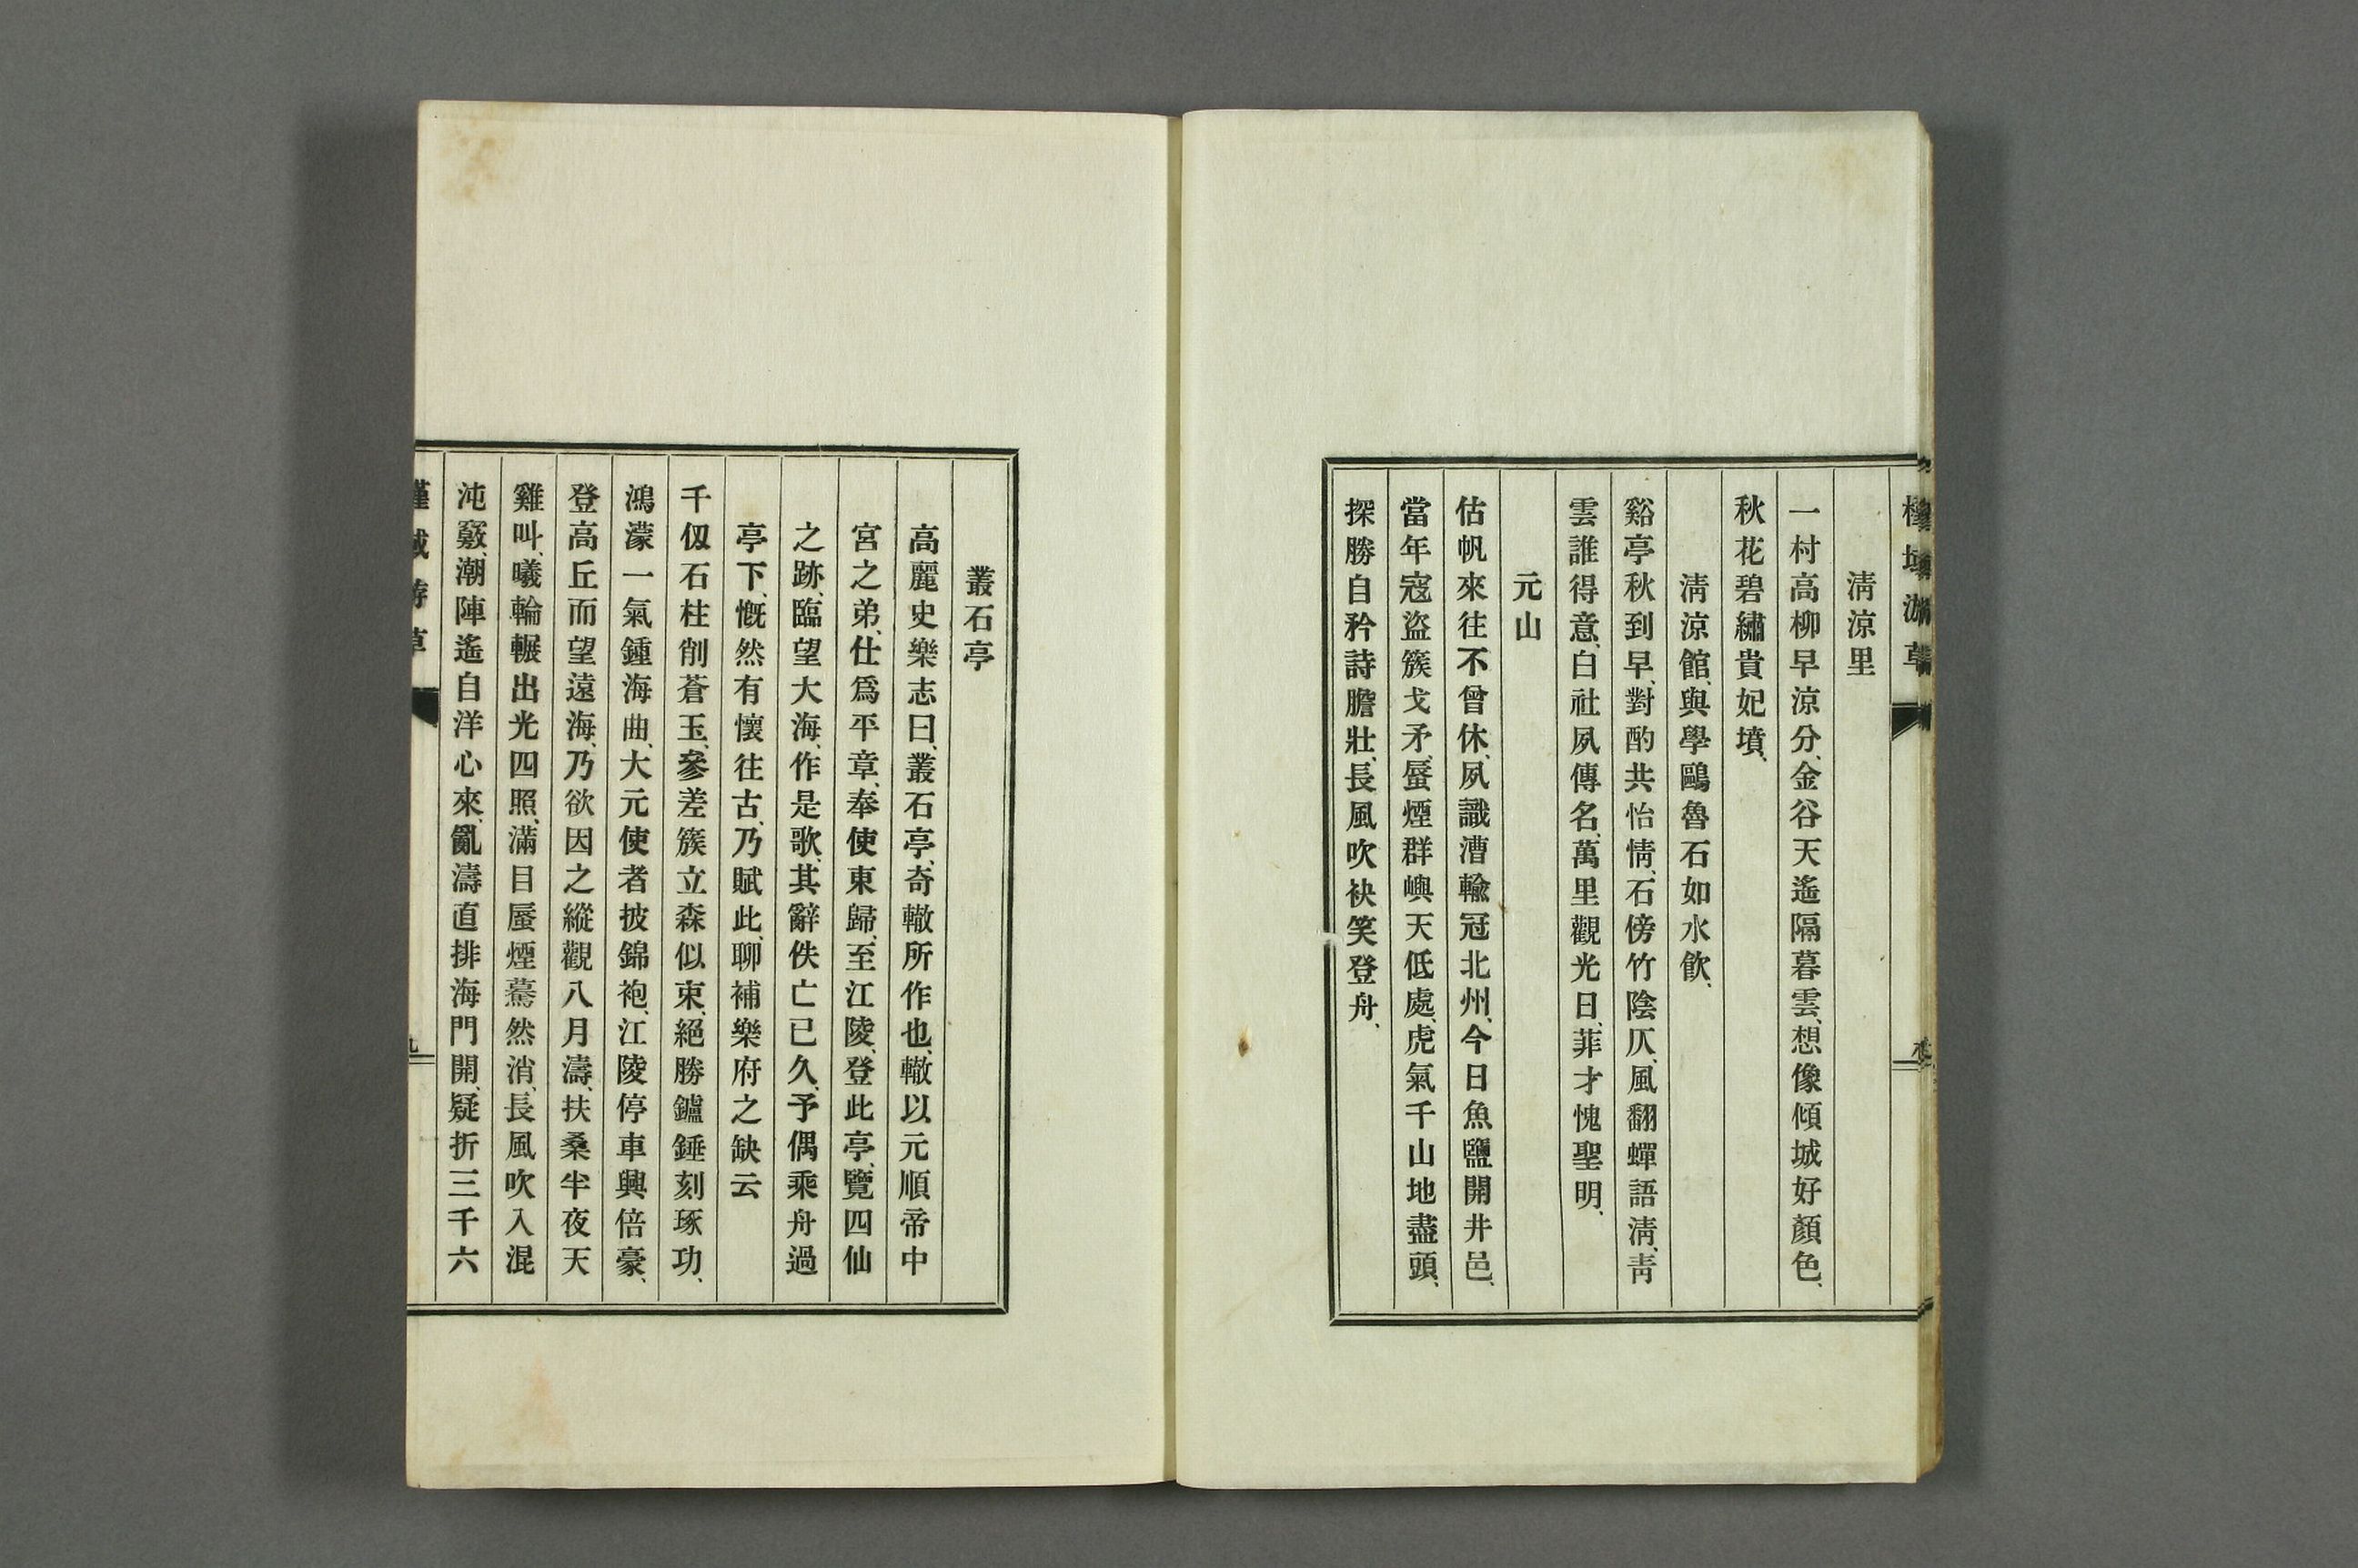 清涼里
一村高柳早涼分、金谷天遙隔暮雲、想像傾城好顏色、
秋花碧繡貴妃墳、
清涼館、與學鷗魯石如水飮、
谿亭秋到早、對酌共怡情、石傍竹陰仄、風翻蟬語淸、靑
雲誰得意、白社夙傳名、萬里觀光日、菲才愧聖明、
元山
估帆來往不曾休、夙識漕輸冠北州、今日魚鹽開井邑、
當年寇盜簇戈矛、蜃煙群嶼天低處、虎氣千山地盡頭、
探勝自矜詩膽壯、長風吹袂笑登舟、
叢石亭
高麗史樂志曰、叢石亭、奇轍所作也、轍以元順帝中
宮之弟、仕爲平章、奉使東歸、至江陵、登此亭、覽四仙
之跡、臨望大海、作是歌、其辭佚亡已久、予偶乘舟過
亭下、慨然有懷往古、乃賦此、聊補樂府之缺云
千仭石柱削蒼玉、參差簇立森似束、絕勝鑪錘刻琢功、
鴻濛一氣鍾海曲、大元使者披錦袍、江陵停車興倍豪、
登高丘而望遠海、乃欲因之縱觀八月濤、扶桑半夜天
雞叫、曦輪輾出光四照、滿目蜃煙驀然消、長風吹入混
沌竅、潮陣遙自洋心來、亂濤直排海門開、疑折三千六
槿域游草
九